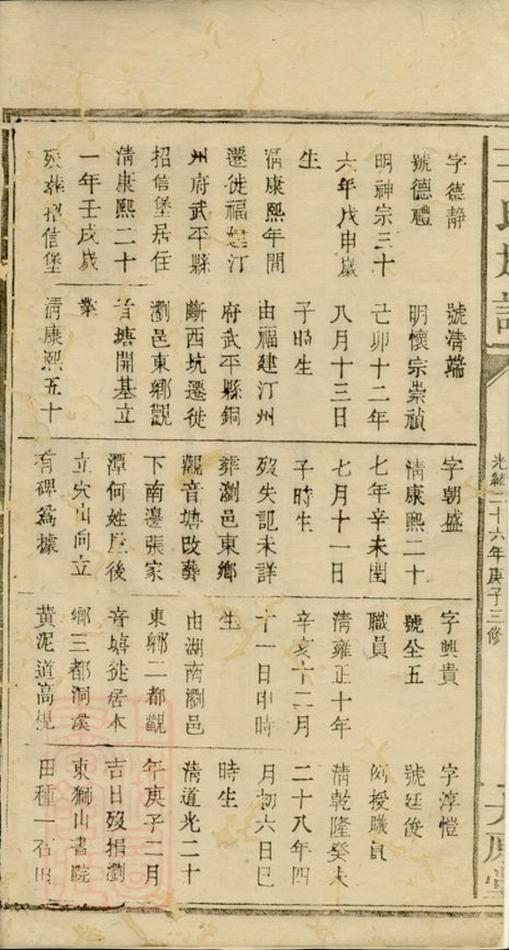 王氏族譜
光緒二十六年庚子三修
太原堂
字德静
號德禮
明神宗三十
六年戊申歲
生
清康熙年間
遷徙福建汀
州府武平縣
招信堡居住
清康熙二十
一年壬戌歲
殁葬招信堡
號清端
明懷宗崇禎
己卯十二年
八月十三日
子時生
由福建汀州
府武平縣銅
斷西坑遷徙
瀏邑東鄉觀
音塘開基立
業
清康熙五十
字朝盛
清康熙二十
七年辛未閏
七月十一日
子時生
殁失記未詳
葬瀏邑東鄉
觀音塘改葬
下南邊張家
潭何姓屋後
立穴山向立
有碑爲據
字興貴
號全五
職員
清雍正十年
辛亥十二月
十一日申時
生
由湖南瀏邑
東鄉二都觀
音塘徙居本
鄉三都洞溪
黃泥道高規
字淳愷
號廷俊
例授職員
清乾隆癸未
二十八年四
月初六日巳
時生
清道光二十
年庚子二月
吉日殁捐瀏
東獅山書院
田種一石田